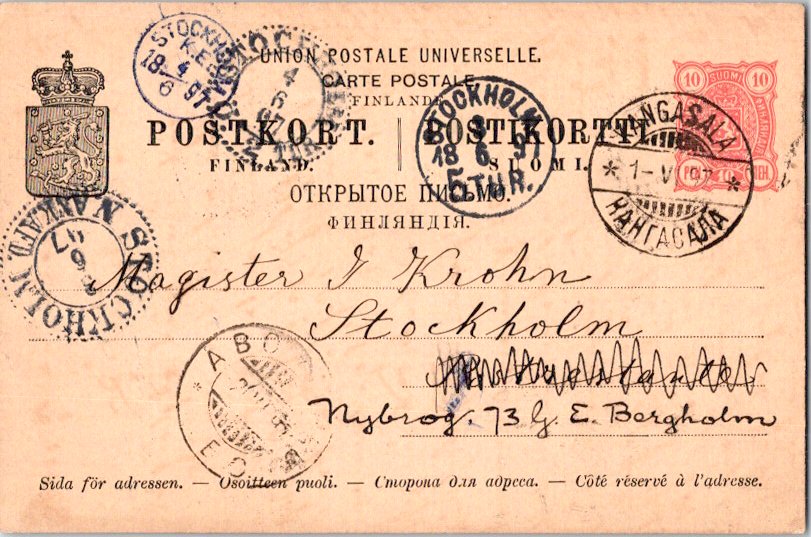 UNION POSTALE UNIVERSELLE.
CARTE POSTALE
FINLANDE
POSTKORT. POSTIKORTTI
FINLAND. SUOMI.
ОТКРЫТОЕ ПИСЬМО.
ФИНЛЯНДІЯ.
10 SUOMI 10
STOCKHOLM
K.E.
18 4/6 97
STOCKHOLM
4
6
97
STOCKHOLM
3
18 6 97
5 TUR.
KANGASALA
1-VI 97
КАНГАСАЛА
STOCKHOLM
97
6
3
Magister I Krohn
Stockholm
Nybrog. 73 G. E. Bergholm
ABO
Sida för adressen. — Osoitteen puoli. — Сторона для адреса. — Côté réservé à l'adresse.